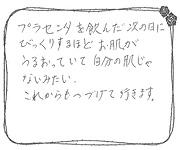 プラセンタを飲んだ次の日に
びっくりするほどお肌が
うるおっていて自分の肌じゃ
ないみたい。
これからもつづけて行きます。